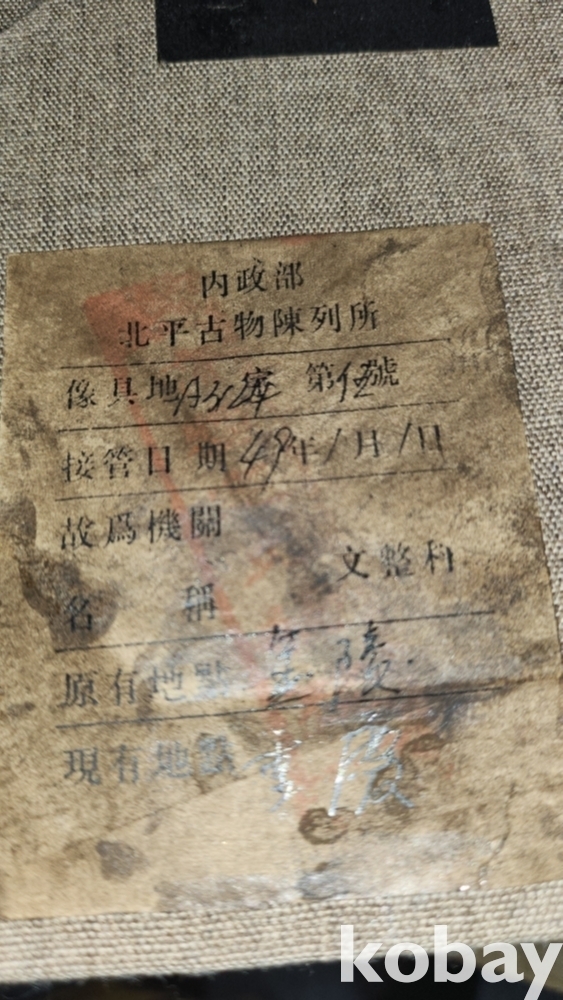 内政部
北平古物陳列所
傢具地 第伍號
接管日期 49年1月1日
故爲機關
文整科
名稱
原有地點
現有地點
kobay